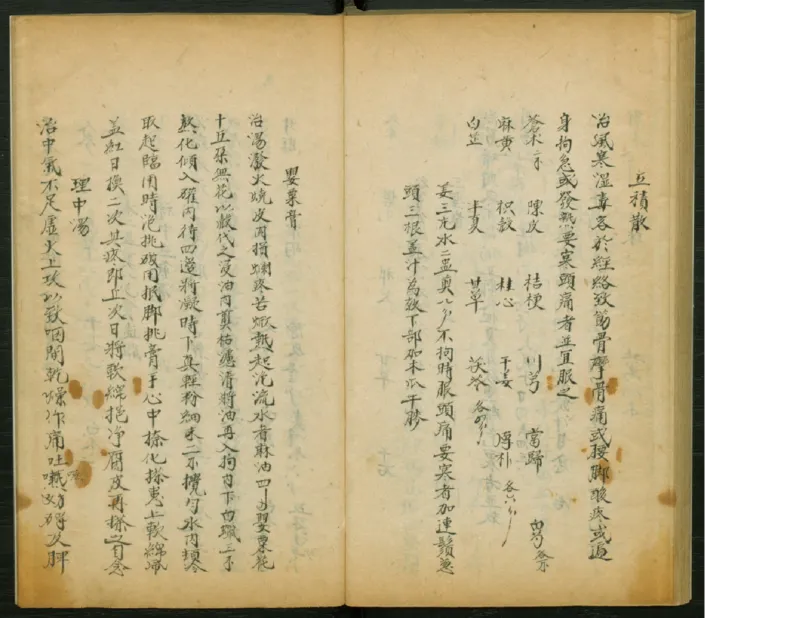 五積散
治風寒濕毒客於經絡致筋骨攣骨痛或腰脚酸疼或遍
身拘急或發熱惡寒頭痛者並宜服之
蒼朮二不 陳皮 桔梗 川芎 當歸 白芍各不
麻黄 枳殼 桂心 干姜 厚朴 各六分
白芷 半夏 甘草 茯苓 各分
姜三片水二盅煎八分不拘時服頭痛惡寒者加連鬚葱
頭三根盖汁為效下部加木瓜干膝
罌粟膏
治湯潑火燒皮肉損爛疼苦焮熱起泡流水者麻油四罌粟花
十五朵無花以殼代之浸油内煎枯濾清將油再入拘内下白蠟三不
熬化傾入礶内待四邉將凝時下真輕粉細末二不攪勻水内頓冷
取起臨用時挑破用抿脚挑膏于心中搽化搽患上軟綿帋
盖紅日換二次其疼即止次日將軟綿挹净腐皮再搽之自愈
理中湯
治中氣不足虛火上攻以致咽間乾燥作痛吐嚥妨碍及脾